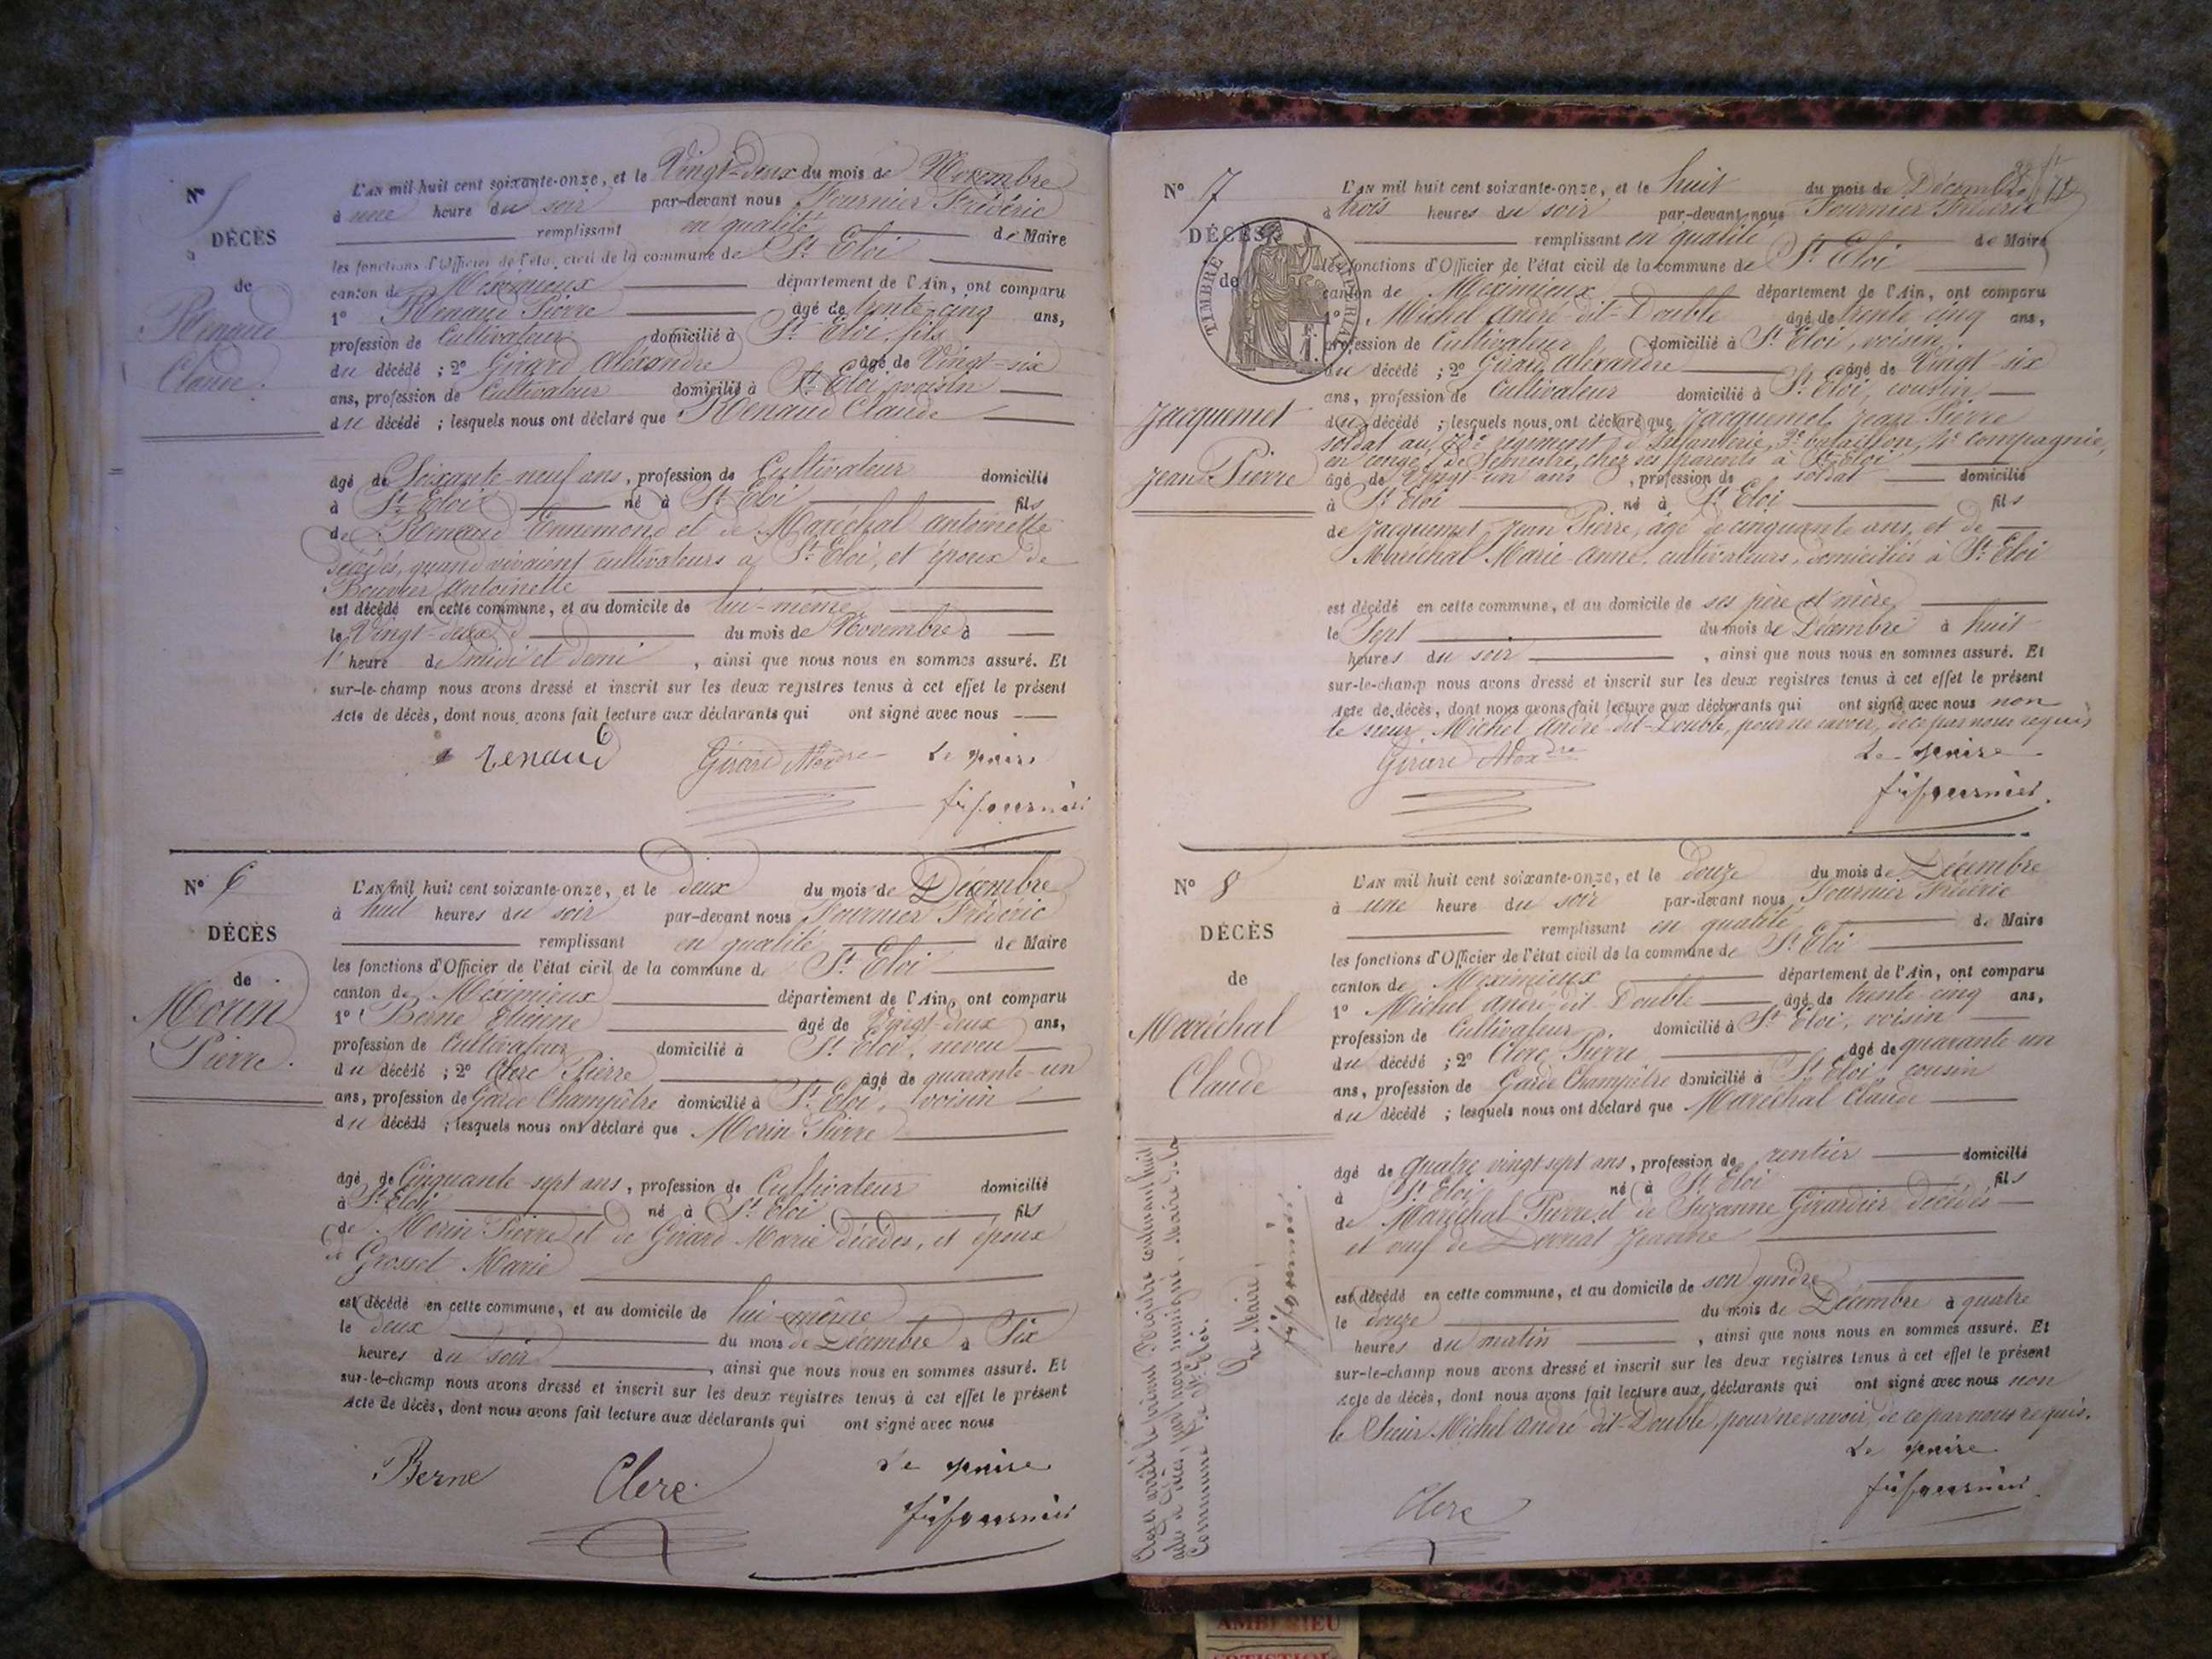 N° 5
DÉCÈS
de
Renaud
Claude.
L'AN mil huit cent soixante-onze, et le Vingt-deux du mois de Novembre
à une heure du soir par-devant nous Fournier Frédéric
remplissant en qualité de Maire
les fonctions d'Officier de l'état civil de la commune de St Eloi
canton de Meximieux département de l'Ain, ont comparu
1° Renaud Pierre âgé de trente-cinq ans,
profession de Cultivateur domicilié à St Eloi, fils
du décédé ; 2° Girard Alexandre âgé de Vingt-six
ans, profession de Cultivateur domicilié à St Eloi, voisin
du décédé ; lesquels nous ont déclaré que Renaud Claude
âgé de Soixante-neuf ans, profession de Cultivateur domicilié
à St Eloi né à St Eloi fils
de Renaud Ennemond et de Maréchal Antoinette
décédés, quand vivaient cultivateurs à St Eloi, et époux de
Bouvier Antoinette
est décédé en cette commune, et au domicile de lui-même
le Vingt-deux du mois de Novembre à
l'heure de midi et demi, ainsi que nous nous en sommes assuré. Et
sur-le-champ nous avons dressé et inscrit sur les deux registres tenus à cet effet le présent
Acte de décès, dont nous avons fait lecture aux déclarants qui ont signé avec nous
Renaud Girard Alexdre Le maire
fr fournier
N° 6
DÉCÈS
de
Morin
Pierre.
L'AN mil huit cent soixante-onze, et le deux du mois de Décembre
à huit heures du soir par-devant nous Fournier Frédéric
remplissant en qualité de Maire
les fonctions d'Officier de l'état civil de la commune de St Eloi
canton de Meximieux département de l'Ain, ont comparu
1° Berne Etienne âgé de Vingt-deux ans,
profession de Cultivateur domicilié à St Eloi, neveu
du décédé ; 2° Clerc Pierre âgé de quarante-un
ans, profession de Garde Champêtre domicilié à St Eloi, voisin
du décédé ; lesquels nous ont déclaré que Morin Pierre
âgé de Cinquante-sept ans, profession de Cultivateur domicilié
à St Eloi né à St Eloi fils
de Morin Pierre et de Girard Marie décédés, et époux
de Grosset Marie
est décédé en cette commune, et au domicile de lui-même
le deux du mois de Décembre à Six
heures du soir, ainsi que nous nous en sommes assuré. Et
sur-le-champ nous avons dressé et inscrit sur les deux registres tenus à cet effet le présent
Acte de décès, dont nous avons fait lecture aux déclarants qui ont signé avec nous
Berne Clerc Le maire
fr fournier
N° 7
DÉCÈS
de
TIMBRE IMPÉRIAL
Jacquemet
Jean Pierre
L'AN mil huit cent soixante-onze, et le huit du mois de Décembre
à trois heures du soir par-devant nous Fournier Frédéric
remplissant en qualité de Maire
les fonctions d'Officier de l'état civil de la commune de St Eloi
canton de Meximieux département de l'Ain, ont comparu
1° Michel André dit-Double âgé de trente cinq ans,
profession de Cultivateur domicilié à St Eloi, voisin
du décédé ; 2° Girard Alexandre âgé de Vingt-six
ans, profession de Cultivateur domicilié à St Eloi, cousin
du décédé ; lesquels nous ont déclaré que Jacquemet Jean Pierre
soldat au régiment d'Infanterie, 3e bataillon, 4e compagnie,
en congé de Semestre, chez ses parents à St Eloi
âgé de Vingt-un ans, profession de soldat domicilié
à St Eloi né à St Eloi fils
de Jacquemet Jean Pierre, âgé de cinquante ans, et de
Maréchal Marie-Anne, cultivateurs, domiciliés à St Eloi
est décédé en cette commune, et au domicile de ses père et mère
le Sept du mois de Décembre à huit
heures du soir, ainsi que nous nous en sommes assuré. Et
sur-le-champ nous avons dressé et inscrit sur les deux registres tenus à cet effet le présent
Acte de décès, dont nous avons fait lecture aux déclarants qui ont signé avec nous non
le sieur Michel André dit-Double, pour ne savoir, de ce par nous requis
Girard Alexdre Le maire
fr fournier
N° 8
DÉCÈS
de
Maréchal
Claude
L'AN mil huit cent soixante-onze, et le douze du mois de Décembre
à une heure du soir par-devant nous Fournier Frédéric
remplissant en qualité de Maire
les fonctions d'Officier de l'état civil de la commune de St Eloi
canton de Meximieux département de l'Ain, ont comparu
1° Michel André dit-Double âgé de trente-cinq ans,
profession de Cultivateur domicilié à St Eloi, voisin
du décédé ; 2° Clerc Pierre âgé de quarante un
ans, profession de Garde Champêtre domicilié à St Eloi, cousin
du décédé ; lesquels nous ont déclaré que Maréchal Claude
âgé de quatre vingt-sept ans, profession de rentier domicilié
à St Eloi né à St Eloi fils
de Maréchal Pierre et de Suzanne Girardier décédés
et veuf de Jeanne
est décédé en cette commune, et au domicile de son gendre
le douze du mois de Décembre à quatre
heures du matin, ainsi que nous nous en sommes assuré. Et
sur-le-champ nous avons dressé et inscrit sur les deux registres tenus à cet effet le présent
Acte de décès, dont nous avons fait lecture aux déclarants qui ont signé avec nous non
le Sieur Michel André dit-Double, pour ne savoir, de ce par nous requis.
Le maire
Clerc fr fournier
Clos et arrêté le présent Registre contenant huit
actes de Décès, par nous soussigné, Maire de la
Commune de St Eloi.
Le Maire,
fr fournier.
AMBERIEU